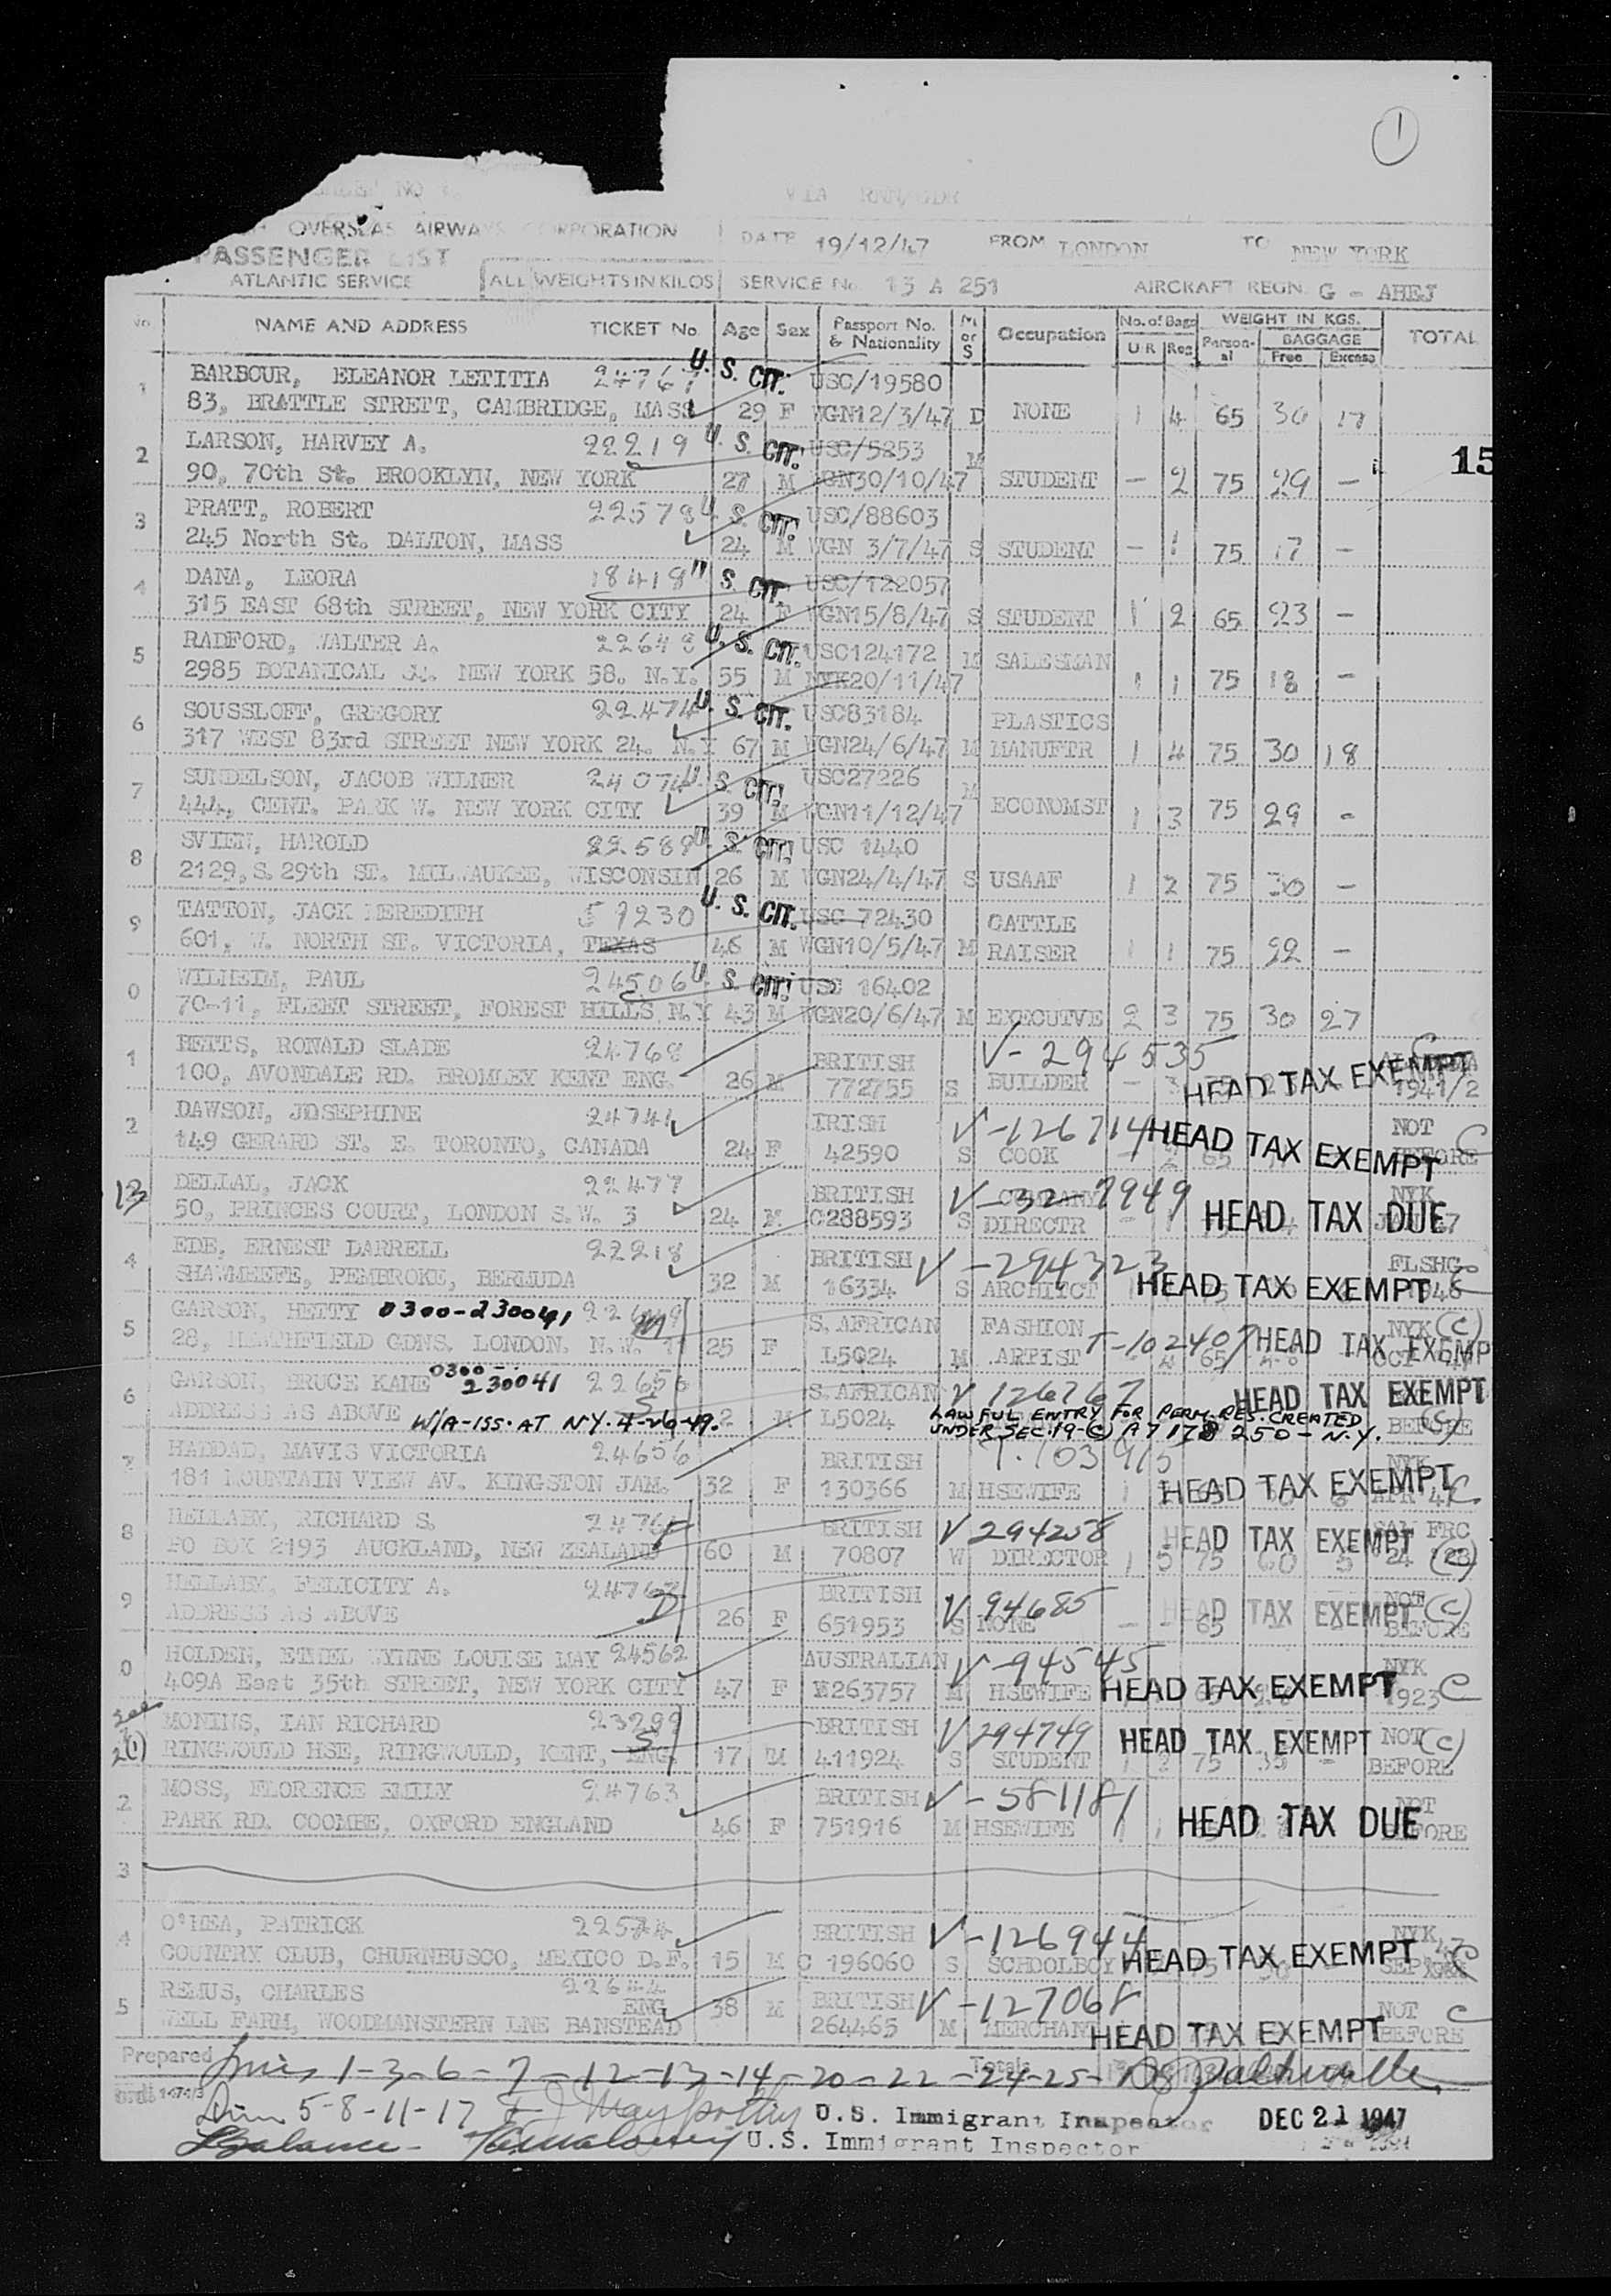 1
NO
VIA
OVERSEAS AIRWAYS CORPORATION
DATE 19/12/47 FROM LONDON TO NEW YORK
PASSENGER LIST
ATLANTIC SERVICE ALL WEIGHTS IN KILOS SERVICE No. 13 A 251 AIRCRAFT REGN. G - AHEJ
No NAME AND ADDRESS TICKET No. Age Sex Passport No. & Nationality M or S Occupation No. of Bags U/R Reg WEIGHT IN KGS. Personal BAGGAGE Free Excess TOTAL
1 BARBOUR, ELEANOR LETITIA 24767 U. S. CIT. USC/19580
83, BRATTLE STREET, CAMBRIDGE, MASS 29 F WGN12/3/47 D NONE 1 4 65 30 17
2 LARSON, HARVEY A. 22219 U. S. CIT. USC/5253 M 15
90, 70th St. BROOKLYN, NEW YORK 27 M WGN30/10/47 STUDENT — 2 75 29 —
3 PRATT, ROBERT 22578 U. S. CIT. USC/88603
245 North St. DALTON, MASS 24 M WGN 3/7/47 S STUDENT — 1 75 17 —
4 DANA, LEORA 18418 S. CIT. USC/122057
315 EAST 68th STREET, NEW YORK CITY 24 F WGN15/8/47 S STUDENT 1 2 65 23 —
5 RADFORD, WALTER A. 22648 U. S. CIT. USC124172 M SALESMAN
2985 BOTANICAL NEW YORK 58. N.Y. 55 M NYK20/11/47 1 1 75 18 —
6 SOUSSLOFF, GREGORY 22474 U. S. CIT. USC83184 PLASTICS
317 WEST 83rd STREET NEW YORK 24. N.Y 67 M WGN24/6/47 M MANUFTR 1 4 75 30 18
7 SUNDELSON, JACOB WILNER 24074 U. S. CIT. USC27226 M
444, CENT. PARK W. NEW YORK CITY 39 M WGN11/12/47 ECONOMST 1 3 75 29 -
8 SVIEN, HAROLD 22589 U. S. CIT. USC 1440
2129, S. 29th ST. MILWAUKEE, WISCONSIN 26 M WGN24/4/47 S USAAF 1 2 75 30 —
9 TATTON, JACK MEREDITH 59230 U. S. CIT. USC 72430 CATTLE
601, W. NORTH ST. VICTORIA, TEXAS 46 M WGN10/5/47 M RAISER 1 1 75 22 —
0 WILHEIM, PAUL 24506 U. S. CIT. USC 16402
70-11, FLEET STREET, FOREST HILLS N.Y 43 M WGN20/6/47 M EXECUTVE 2 3 75 30 27
1 BETTS, RONALD SLADE 24768 BRITISH V-294535
100, AVONDALE RD. BROMLEY KENT ENG. 26 M 772755 S BUILDER — 3 HEAD TAX EXEMPT 1941/2
2 DAWSON, JOSEPHINE 24744 IRISH V-126714 HEAD TAX EXEMPT NOT
149 GERARD ST. E. TORONTO, CANADA 24 F 42590 S COOK BEFORE C
13 DELLAL, JACK 22477 BRITISH V-327949 COMPANY NYK
50, PRINCES COURT, LONDON S.W. 3 24 M C288593 S DIRECTR HEAD TAX DUE
4 EDE, ERNEST DARRELL 22218 BRITISH V-294323 FLSHG
PEMBROKE, BERMUDA 32 M 16334 S ARCHITCT HEAD TAX EXEMPT 1946
5 GARSON, HETTY 0300-230041 S. AFRICAN FASHION NYK (C)
28, HEATHFIELD GDNS. LONDON. N.W. 11 25 F L5024 M ARTIST T-102407 HEAD TAX EXEMP
6 GARSON, BRUCE KANE 0300-230041 S. AFRICAN V 126767 HEAD TAX EXEMPT
ADDRESS AS ABOVE W/A-ISS. AT N.Y. 4-26-49. 2 M L5024 LAWFUL ENTRY FOR PERM. RES. CREATED UNDER SEC. 19-(c) A7 178 250 - N.Y. BEFORE (C)
7 HADDAD, MAVIS VICTORIA 24656 BRITISH T. 103915 NYK
181 MOUNTAIN VIEW AV. KINGSTON JAM. 32 F 130366 M HSEWIFE 1 HEAD TAX EXEMPT APR 47 C
8 HELLABY, RICHARD S. BRITISH V 294258 HEAD TAX EXEMPT SAN FRC
PO BOX 2193 AUCKLAND, NEW ZEALAND 60 M 70807 W DIRECTOR 1 5 75 60 5 24 (C)
9 HELLABY, FELICITY A. BRITISH V 94685 HEAD TAX EXEMPT NOT (C)
ADDRESS AS ABOVE 26 F 651953 S NONE — - 65 BEFORE
0 HOLDEN, ETHEL WYNNE LOUISE MAY 24562 AUSTRALIAN V-94545 NYK
409A East 35th STREET, NEW YORK CITY 47 F 263757 M HSEWIFE HEAD TAX EXEMPT 1923 C
MONINS, IAN RICHARD 23299 BRITISH V 294749 HEAD TAX EXEMPT NOT (C)
RINGWOULD HSE, RINGWOULD, KENT, ENG. 17 M 411924 S STUDENT 1 2 75 BEFORE
2 MOSS, FLORENCE EMILY 24763 BRITISH V-581181 NOT
PARK RD. COOMBE, OXFORD ENGLAND 46 F 751916 M HSEWIFE HEAD TAX DUE BEFORE
3
4 O'HEA, PATRICK 22574 BRITISH V-126944 NYK
COUNTRY CLUB, CHURNBUSCO, MEXICO D.F. 15 M C 196060 S SCHOOLBOY HEAD TAX EXEMPT SEP C
5 REMUS, CHARLES 22644 BRITISH V-127068 NOT C
WELL FARM, WOODMANSTERN LNE BANSTEAD ENG 38 M 264465 M MERCHANT HEAD TAX EXEMPT BEFORE
Prepared Lines 1-3-6-7-12-13-14-20-22-24-25- Totals
5-8-11-17 U.S. Immigrant Inspector DEC 21 1947
Balance - U.S. Immigrant Inspector